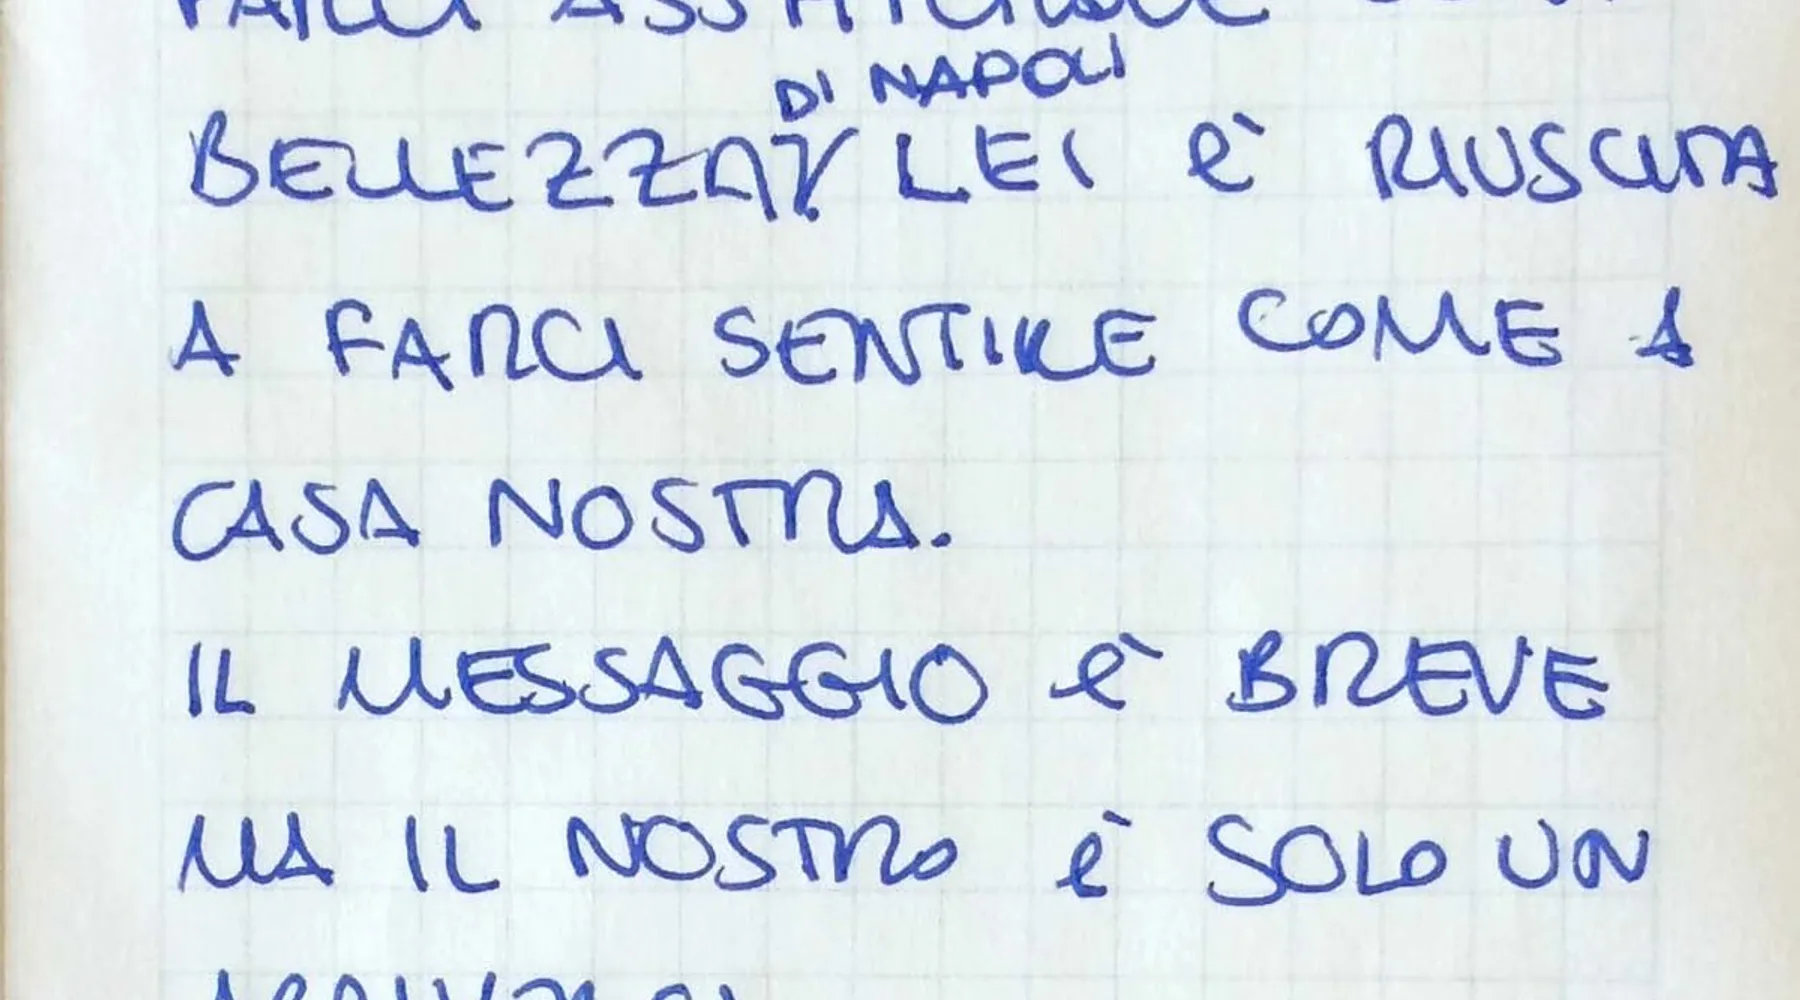 FARCI ASSAPORARE
DI NAPOLI
BELLEZZA, LEI è RIUSCITA
A FARCI SENTIRE COME A
CASA NOSTRA.
IL MESSAGGIO è BREVE
MA IL NOSTRO è SOLO UN
ARRIVEDERCI